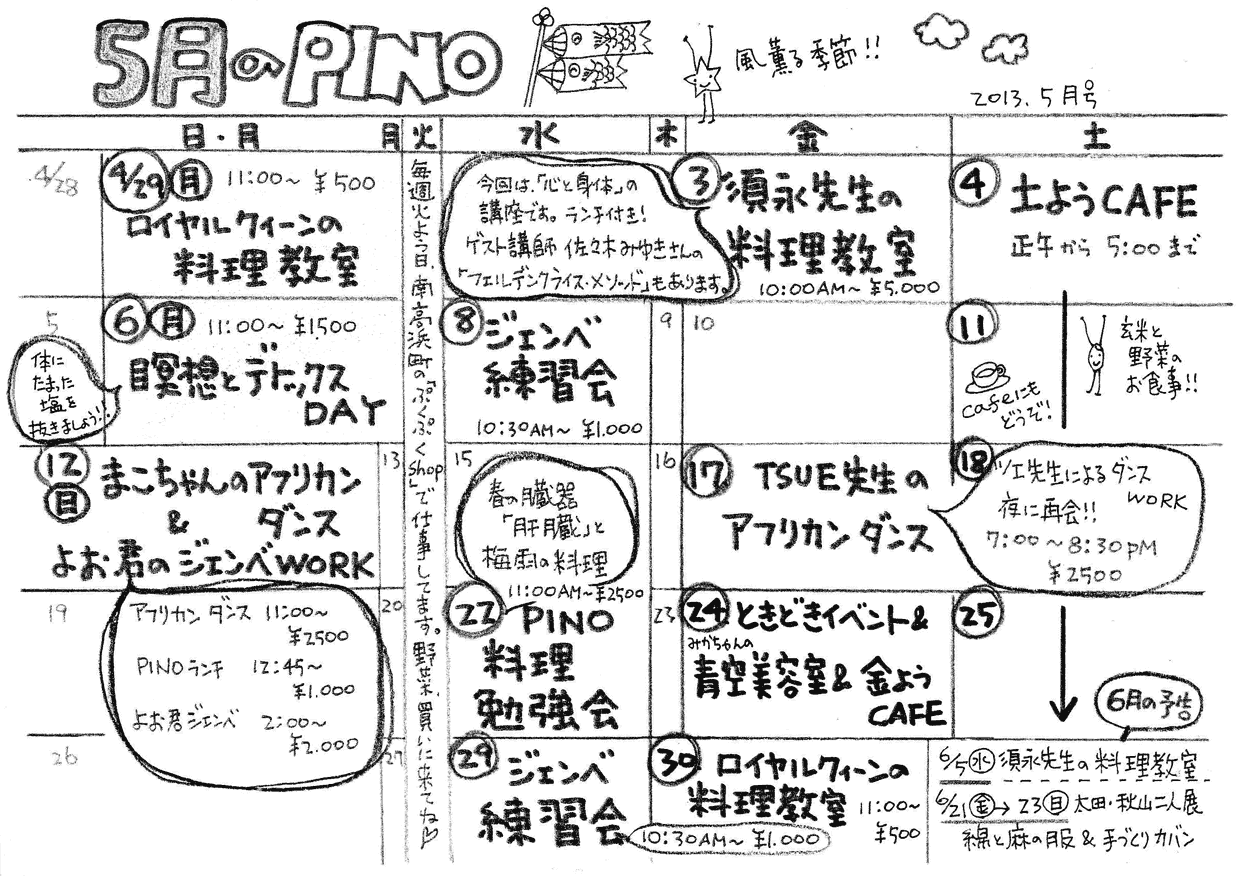 5月のPINO
風薫る季節!!
2013.5月号
日・月 月 火 水 木 金 土
4/28
4/29 月 11:00〜 ¥500
ロイヤルクィーンの
料理教室
毎週火よう日、南高浜町の「ぷくぷくshop」で仕事してます。野菜、買いに来てね♡
今回は、「心と身体」の
講座です。ランチ付き!
ゲスト講師 佐々木みゆきさんの
「フェルデンクライス・メソッド」もあります。
3 須永先生の
料理教室
10:00AM〜 ¥5.000
4 土ようCAFE
正午から 5:00まで
5
6 月 11:00〜 ¥1500
瞑想とデトックス
DAY
体に
たまった
塩を
抜きましょう!!
8 ジェンベ
練習会
10:30AM〜 ¥1.000
9
10
11
cafeにも
どうぞ!
玄米と
野菜の
お食事!!
12 日 まこちゃんのアフリカン
& ダンス
よお君のジェンベWORK
アフリカンダンス 11:00〜
¥2500
PINOランチ 12:45〜
¥1.000
よお君ジェンベ 2:00〜
¥2.000
13
15
春の臓器
「肝臓」と
梅雨の料理
16
17 TSUE先生の
アフリカンダンス
18 ツエ先生によるダンス
WORK
夜に再会!!
7:00〜8:30PM
¥2500
19
20
11:00AM〜¥2500
22 PINO
料理
勉強会
23
24 ときどきイベント&
みかちゃんの
青空美容室 & 金よう
CAFE
25
26
27
29 ジェンベ
練習会
10:30AM〜 ¥1.000
30 ロイヤルクィーンの
料理教室 11:00〜
¥500
6月の予告
6/5 水 須永先生の料理教室
6/21 金→23 日 太田・秋山二人展
綿と麻の服 & 手づくりカバン